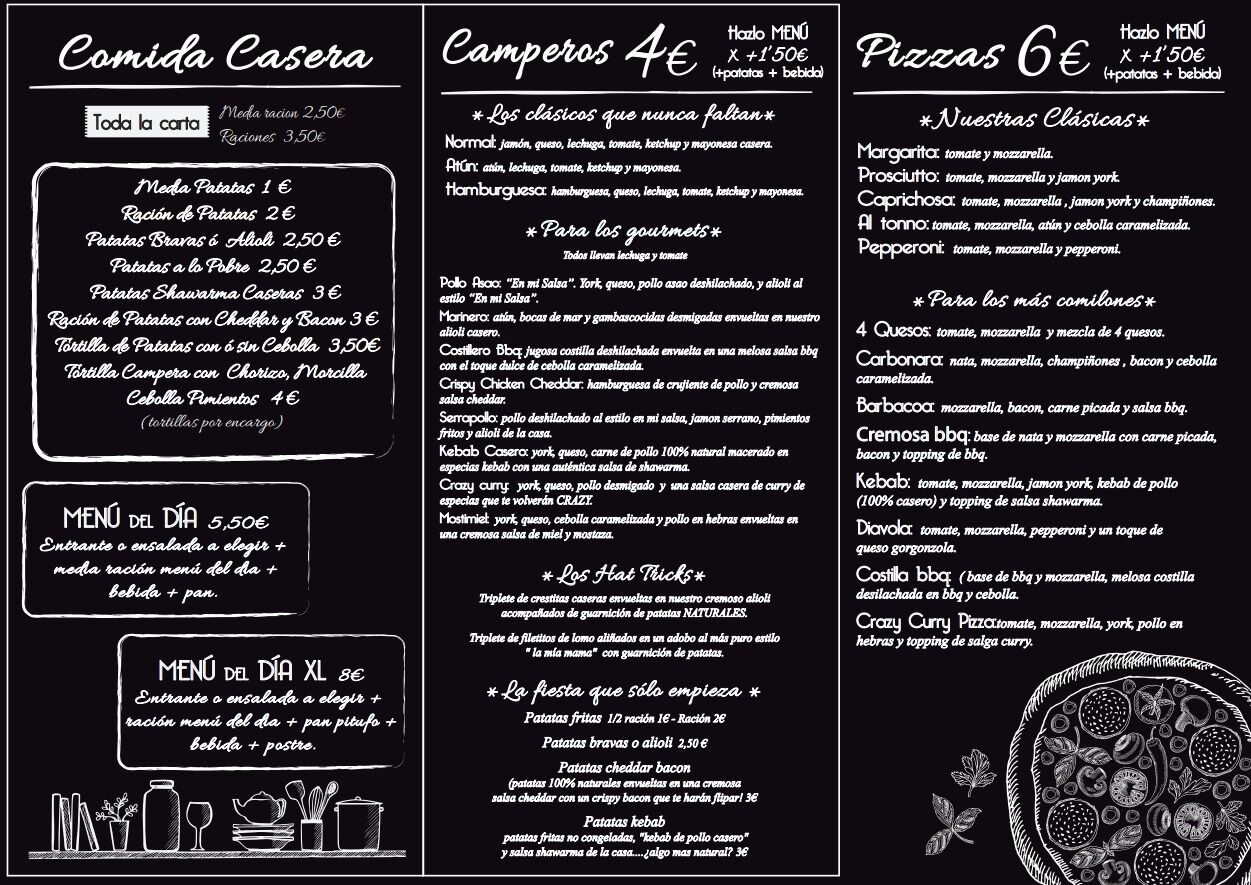 Comida Casera
Toda la carta
Media racion 2,50€
Raciones 3,50€
Media Patatas 1 €
Ración de Patatas 2 €
Patatas Bravas ó Alioli 2,50 €
Patatas a lo Pobre 2,50 €
Patatas Shawarma Caseras 3 €
Ración de Patatas con Cheddar y Bacon 3 €
Tortilla de Patatas con ó sin Cebolla 3,50€
Tortilla Campera con Chorizo, Morcilla
Cebolla Pimientos 4 €
(tortillas por encargo)
MENÚ DEL DÍA 5,50€
Entrante o ensalada a elegir +
media ración menú del dia +
bebida + pan.
MENÚ DEL DÍA XL 8€
Entrante o ensalada a elegir +
ración menú del dia + pan pitufo +
bebida + postre.
Camperos 4€
Hazlo MENÚ
X +1'50€
(+patatas + bebida)
*Los clásicos que nunca faltan*
Normal: jamón, queso, lechuga, tomate, ketchup y mayonesa casera.
Atún: atún, lechuga, tomate, ketchup y mayonesa.
Hamburguesa: hamburguesa, queso, lechuga, tomate, ketchup y mayonesa.
*Para los gourmets*
Todos llevan lechuga y tomate
Pollo Asao: “En mi Salsa”. York, queso, pollo asao deshilachado, y alioli al
estilo “En mi Salsa”.
Marinero: atún, bocas de mar y gambascocidas desmigadas envueltas en nuestro
alioli casero.
Costillero Bbq: jugosa costilla deshilachada envuelta en una melosa salsa bbq
con el toque dulce de cebolla caramelizada.
Crispy Chicken Cheddar: hamburguesa de crujiente de pollo y cremosa
salsa cheddar.
Serrapollo: pollo deshilachado al estilo en mi salsa, jamon serrano, pimientos
fritos y alioli de la casa.
Kebab Casero: york, queso, carne de pollo 100% natural macerado en
especias kebab con una auténtica salsa de shawarma.
Crazy curry: york, queso, pollo desmigado y una salsa casera de curry de
especias que te volverán CRAZY.
Mostimiel: york, queso, cebolla caramelizada y pollo en hebras envueltas en
una cremosa salsa de miel y mostaza.
*Los Hat Tricks*
Triplete de crestitas caseras envueltas en nuestro cremoso alioli
acompañados de guarnición de patatas NATURALES.
Triplete de filetitos de lomo aliñados en un adobo al más puro estilo
" la mía mama" con guarnición de patatas.
*La fiesta que sólo empieza *
Patatas fritas 1/2 ración 1€ - Ración 2€
Patatas bravas o alioli 2,50 €
Patatas cheddar bacon
(patatas 100% naturales envueltas en una cremosa
salsa cheddar con un crispy bacon que te harán flipar! 3€
Patatas kebab
patatas fritas no congeladas, "kebab de pollo casero"
y salsa shawarma de la casa....¿algo mas natural? 3€
Pizzas 6€
Hazlo MENÚ
X +1'50€
(+patatas + bebida)
*Nuestras Clásicas*
Margarita: tomate y mozzarella.
Prosciutto: tomate, mozzarella y jamon york.
Caprichosa: tomate, mozzarella , jamon york y champiñones.
Al tonno: tomate, mozzarella, atún y cebolla caramelizada.
Pepperoni: tomate, mozzarella y pepperoni.
*Para los más comilones*
4 Quesos: tomate, mozzarella y mezcla de 4 quesos.
Carbonara: nata, mozzarella, champiñones , bacon y cebolla
caramelizada.
Barbacoa: mozzarella, bacon, carne picada y salsa bbq.
Cremosa bbq: base de nata y mozzarella con carne picada,
bacon y topping de bbq.
Kebab: tomate, mozzarella, jamon york, kebab de pollo
(100% casero) y topping de salsa shawarma.
Diavola: tomate, mozzarella, pepperoni y un toque de
queso gorgonzola.
Costilla bbq: ( base de bbq y mozzarella, melosa costilla
desilachada en bbq y cebolla.
Crazy Curry Pizza:tomate, mozzarella, york, pollo en
hebras y topping de salga curry.